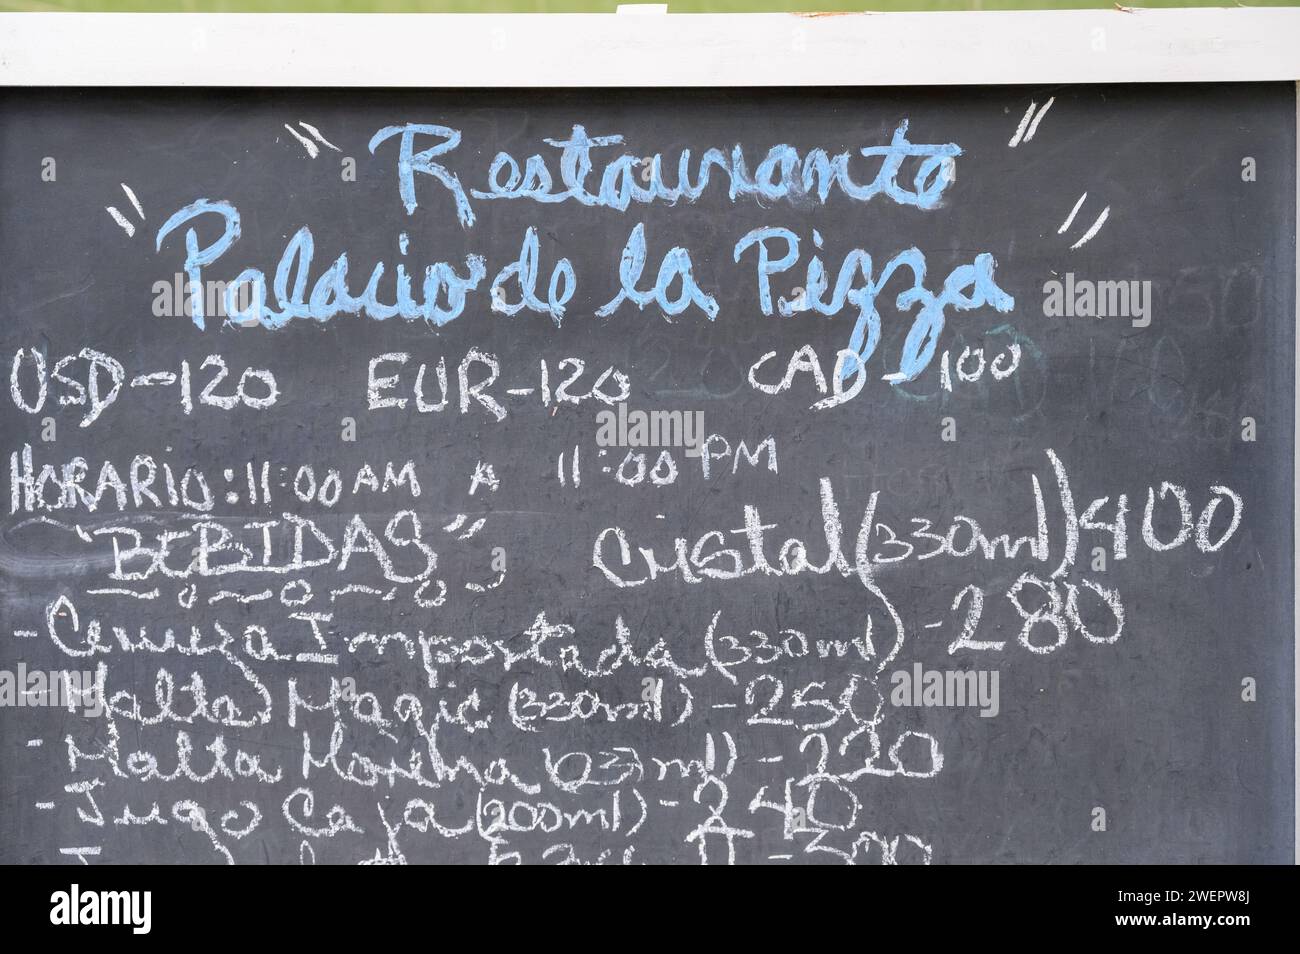 "Restaurante"
"Palacio de la Pizza"
USD-120 EUR-120 CAD-100
HORARIO: 11:00 AM A 11:00 PM
"BEBIDAS" Cristal (330ml) 400
- Cerveza Importada (330ml) - 280
- Malta Magic (330ml) - 250
- Malta Morena - 220
- Jugo Caja (200ml) - 240
alamy
Image ID: 2WEPW8J
www.alamy.com